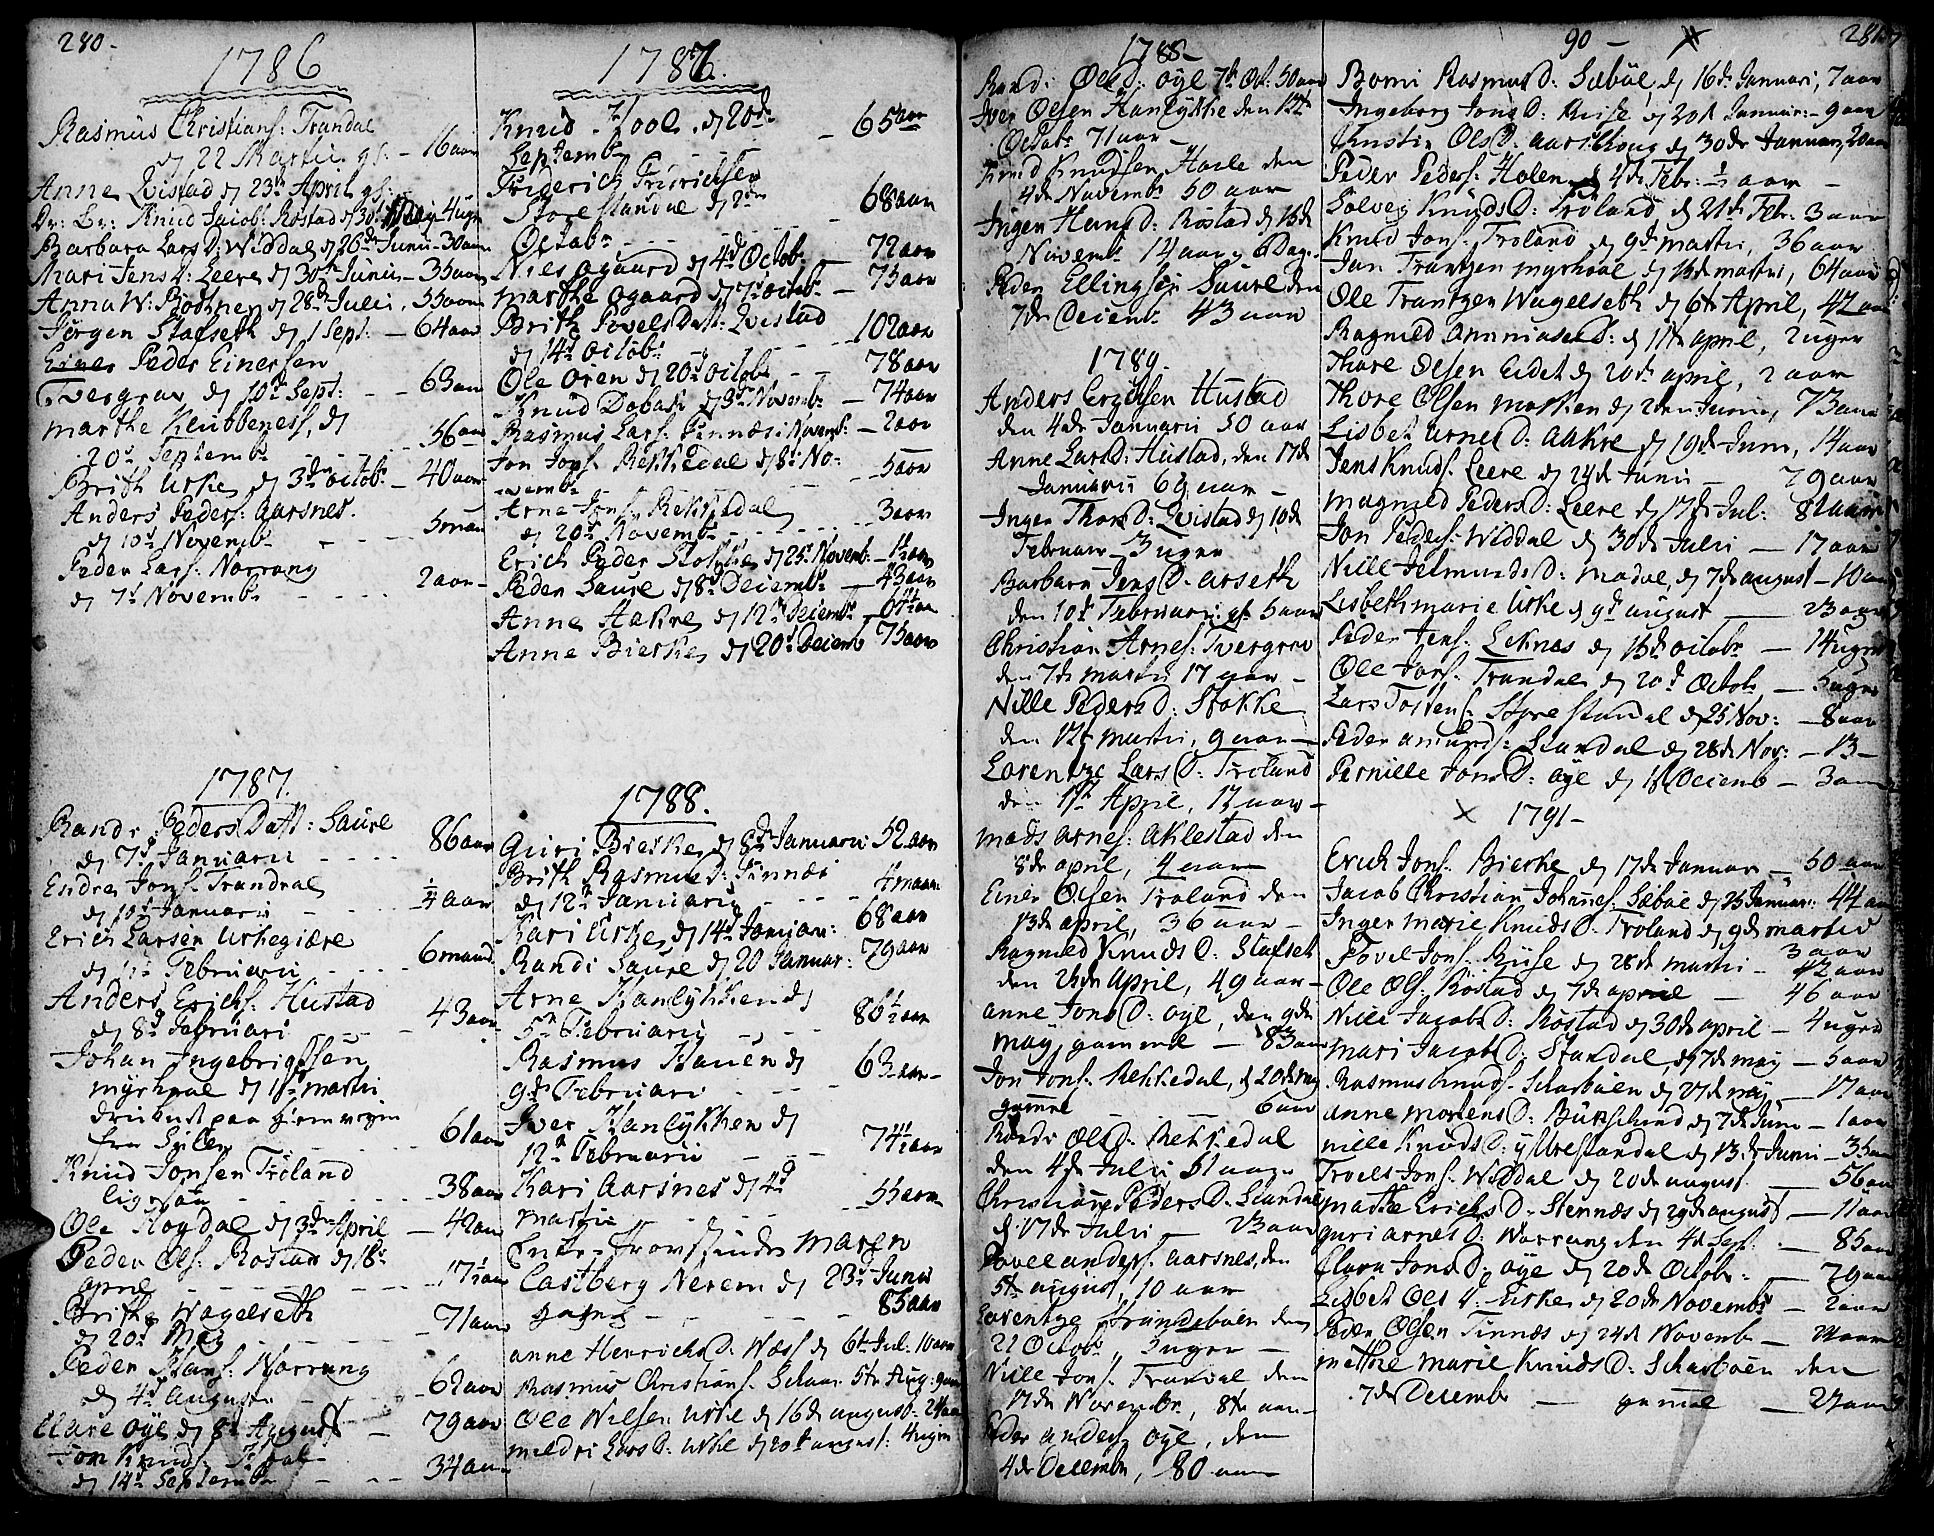 280.
1786
Rasmus Christians: Trandal
dj 22 Martii gl: — 16 aar
Anne Qvistad dj 23d April gl:
Dr: Br: Knud Jacobs: Rostad dj 30d May 4 ugr
Barbara Lars D: Widdal dj 26de Junii 30 aar
Mari Jens D: Leere dj 30te Junii — 35 aar
Anna W: Bodtner dj 28de Julii, 55 aar
Jørgen Stafseth dj 1 Sept: — 64 aar
Peder Einersen
Tvergrav dj 10d Sept: — 63 aar
Marthe Klubbenes, dj
20d Septembr — 56 aar
Brith Urke dj 3de Octobr — 40 aar
Anders Peders: Aarsnes.
dj 10d Novembr — 5 maan
Peder Lars: Norrang
dj 7d Novembr — 2 aar
1787.
Randi Peders Datt: Saure
dj 7d Januarii — 86 aar
Endre Jons: Trandal
dj 10d Januarii — 1/4 aar
Erich Larsen Urkegiære
dj Februarii — 6 maand
Anders Erichs: Hustad
dj 8d Februari — 43 aar
Johan Ingebrigtsen
Myrhoal dj 18d Martii
druknet paa Hiemvejen
fra — 61 aar
Knud Jonsen Troland
ligesaa — 38 aar
Ole Skogdal dj 3de April — 42 aar
Peder Ols: Rostad dj 18d
April — 17 1/2 aar
Brithe Wagelseth
dj 20d Maj — 71 aar
Peder Hans: Norrang
dj 4d Augusti — 62 aar
Clare Øye dj 8d August — 79 aar
Jon Knuds:
dj 14d Septembr — 34 aar
1787.
Knud Hool dj 20de
Septembr — 65 aar
Friderich Fridrichsen
Store Standal dj 2den
Octobr — 68 aar
Niels Ogaard dj 4d Octobr — 72 aar
Marthe Ogaard dj 7d Octobr — 75 aar
Brith Povels Datt: Qvistad
dj 14d Octobr — 102 aar
Ole Oren dj 20d Octobr — 78 aar
Knud Dobak dj 3d Novembr — 74 aar
Rasmus Lars: Finnes: Novembr — 2 aar
Jon Jons: Rekkedal dj 8d No-
vembr — 5 aar
Arne Jons: Rekkedal
dj 20d Novembr — 3 aar
Erich Peder Stokke dj 25d Novemb. — 1 1/2 aar
Peder Saure dj 8d Decembr — 43 aar
Anne Aakre dj 12te Decembr 64 1/2 aar
Anne Bierke dj 20d Decemb 75 aar
1788.
Guri Bierke dj 8de Januarii 52 aar
Brith Rasmus D: Finnes
dj 12te Januarii — 4 maan
Kari Urke dj 14d Januar: 68 aar
Randi Saure dj 20 Januar: 79 aar
Arne Hanlykken dj
5te Februarii — 86 1/2 aar
Rasmus Hauen dj
9de Februari — 63 aar
Iver Hanlykken dj
12te Februarii — 74 1/2 aar
Kari Aarsnes dj 4d
Martii — 55 aar
Enke Provstinde Maren
Castberg Nerem dj 23d Junii
— 85 aar
Anne Henrichs D: Wæss dj 6te Jul: 10 aar
Rasmus Christians: 5te Aug:
Ole Nilsen Urke dj 16de August: 2 aar
Mildri Lars D: Urke dj 20de August: 4 ugr
1788
Randi Ols D: Øye 7de Oct: 50 aar
Iver Olsen Hanlykke den 14de
Octobr 71 aar —
Knud Knudsen Hasle den
4de Novembr 50 aar
Inger Hans D: Rostad dj 15de
Novembr 14 aar 6 Dage
Peder Ellingsen Saure den
7de Decembr 43 aar
1789.
Anders Erichsen Hustad
den 4de Januarii 50 aar
Anne Lars D: Hustad, den 17de
Januarii 69 aar —
Inger Thors D: Qvistad dj 10de
Februarr 3 uger
Barbara Jens D: Arseth
den 10de Februarii gl: 5 aar
Christian Arnes: Tvergrov
den 7de Martii 17 aar —
Nille Peders D: Stokke
den 12te Martii, 9 aar —
Lorentze Lars D: Troland
den 17de April, 12 aar —
Mads Arnes: Aklestad den
8de April, 4 aar
Einer Olsen Troland den
13de April, 36 aar —
Ragnild Knuds D: Stafset
den 26de April, 49 aar —
Anne Jons D: Øye, den 9de
May, gammel — 83 aar
Jon Jons: Rekkedal, dj 20de May
gamel — 6 aar
Rande Ols D: Rekkedal
den 4de Julii 51 aar
Christiane Peders D: Standal
dj 17de Julii — 23 aar
Povel Anders: Aarsnes, den
5te August, 10 aar
Lorentze Strandeboen den
22 Octobr, 3 uger —
Nille Jons: Trandal den
17de Novembr, 8 1/2 aar —
Peder Anders: Øye, den
4de Decembr, 80 aar
90 —
281
Bomi Rasmus D: Sæbøe, dj 16de Januari, 7 aar
Ingeborg Jons D: Riise dj 20de Januari — 9 aar
Christin Ols D: dj 30de Januar, 20 aar
Peder Peders: Holen dj 4de Febr: 1/2 aar —
Solvej Knuds D: Troland dj 21de Febr: 3 aar
Knud Jons: Troland dj 9de Martii, 36 aar
Jan Frantzen Myrhoal dj 15de Martii, 64 aar
Ole Frantzen Wagelseth dj 6te April, 42 aar
Ragnild D: dj 11te April, 2 uger
Thore Olsen Eidet dj 20de April, 2 aar
Thore Olsen Morken dj 2den Junii, 73 aar
Lisbet Arnes D: Aakre dj 19de Juni, 14 aar
Jens Knuds: Leere dj 24de Junii — 79 aar
Magnild Peders D: Leere dj 17de Jul: 82 aar
Jon Peders: Widdal dj 30de Julii — 17 aar
Nille Helmunds D: Modal, dj 7de August — 10 aar
Lisbeth Marie Urke dj 9de August — 23 aar
Peder Jens: Leknes dj 15de Octobr — 14 ugr
Ole Jons: Trandal dj 20de Octob. — 5 uger
Lars Tostens: Store Standal dj 25 Nov: — 8 aar
Peder Amunds: Standal dj 28de Nov: — 13 —
Pernille Jons D: Øye dj 18 Decemb — 3 aar
1791 —
Erich Jons: Bierke dj 17de Januar — 50 aar
Jacob Christian Johannes: Sæbøe dj 25 Januar: 44 aar
Inger Marie Knuds D: Troland dj 9de Martii
3 aar
Povel Jons: Riise dj 28de Martii — 42 aar
Ole Ols: Rostad dj 7de April — 46 aar
Nille Jacobs D: Rostad dj 30de April — 4 ugr
Mari Jacobs D: Standal, dj 7de May — 5 aar
Rasmus Knuds: Skarboen dj 27de May, — 17 aar
Anne Mortens D: dj 7de Juni — 1 aar
Nille Knuds D: Ytterstandal dj 13de Junii — 35 aar
Troels Jons: Widdal dj 20de August — 56 aar
Mathe Erichs D: Stennes dj 29de August — 11 aar
Guri Arnes D: Norrang den 4de Sept: — 85 aar
Clara Jons D: Øye dj 20de Octobr — 79 aar
Lisbet Ols D: Urke dj 20de Novembr — 2 aar
Peder Olsen Finnes dj 24de Novemb — 24 aar
Mathe Marie Knuds D: Skarboen den
7de Decembr — gamel — 24 aar